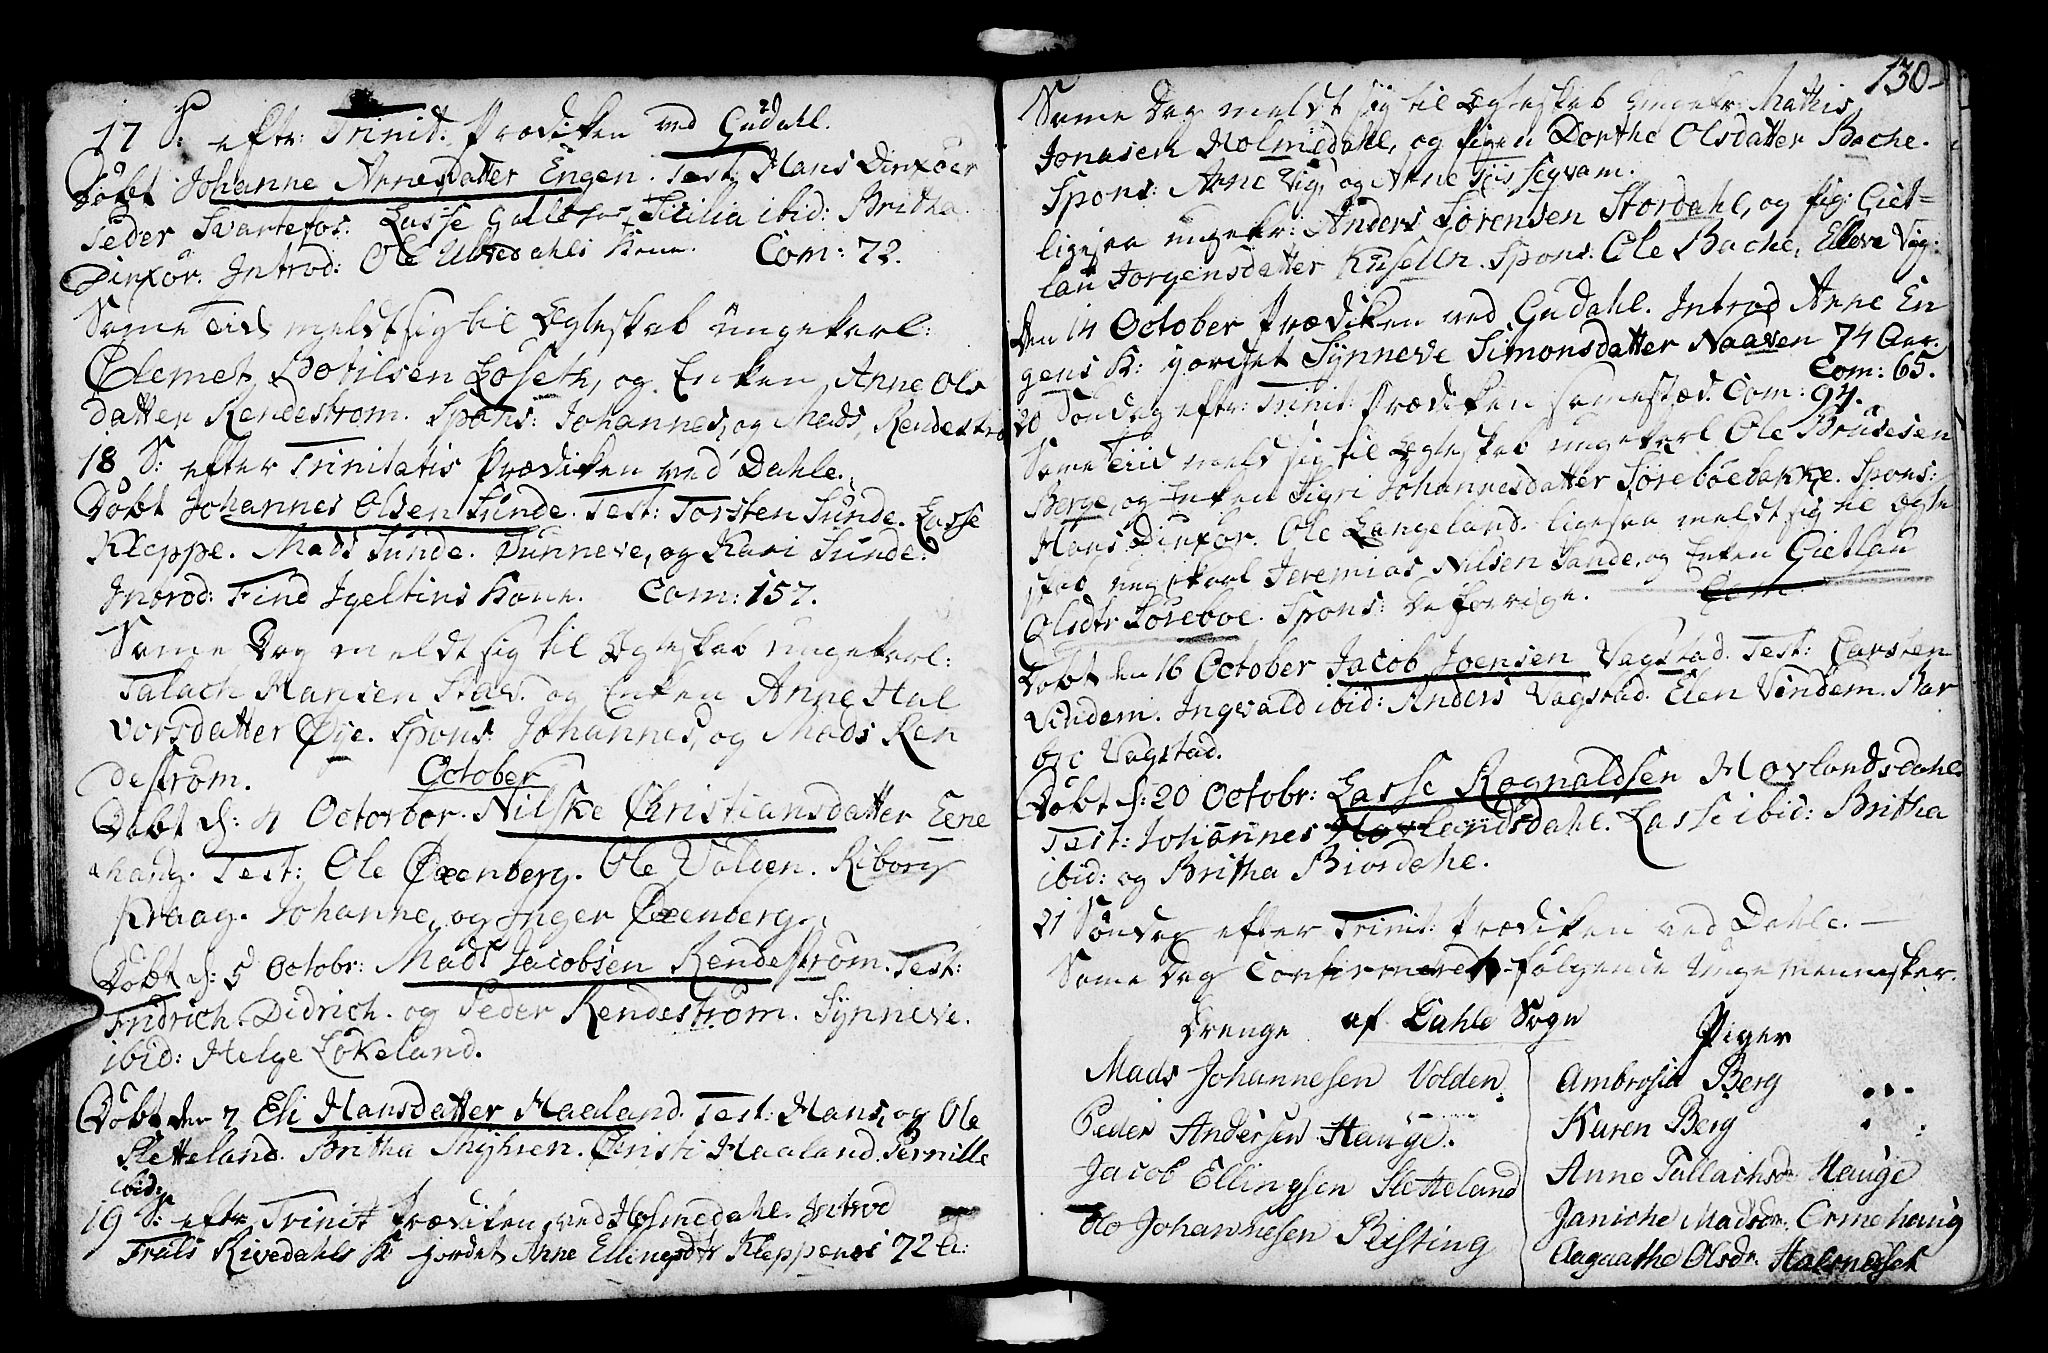 17 S: efter Trinit: Prædiken ved Gudahl.
Döbt Johanne Arnesdatter Engen. Test: Hans Dinxöer
Peder Svartefos: Lasse Sicilia ibid: Britha
Dinxör. Introd: Ole Ulvedahls Kone. Com: 72.
Same Tid meldt sig til Egteskab ungekarl:
Clemet Botilsen Loseth, og Enken Anne Ols
datter Rendestrom. Spons: Johannes, og Mads, Rendestro
18 S: efter Trinitatis Prædiken ved Dahle.
Döbt Johannes Olsen Sunde. Test: Torsten Sunde. Lasse
Kleppe. Mads Sunde. Sunneve, og Kari Sunde.
Introd: Find Igeltins Kone. Com: 157.
Same Dag meldt sig til Egteskab ungekarl:
Talach Hansen Stav. og Enken Anne Hal
vorsdatter Øye. Spons: Johannes, og Mads Ren
deström.
October
Döbt d: 4 Octorbor. Nilske Christiansdatter Eene
haug. Test: Ole Oxenberg. Ole Volden. Riborg
Kraag. Johanne, og Inger Oxenberg.
Döbt d: 5 Octobr: Mads Jacobsen Rendeström. Test:
Fridrich. Didrich. og Peder Rendestrom. Synneve.
ibid: Helge Lökeland.
Döbt den 7 Eli Hansdatter Haaland. Test: Hans, og Ole
Sletteland. Britha Christi Haaland. Pernille
ibid:
19 S: efter Trinit Prædiken ved Holmedahl. Introd
Truls Rivedahls K jordet Anne Ellingsdtr Kleppenes 72 A:
130
Same Dag meldt sig til Egteskab ungekr: Mathis
Jonasen Holmedahl, og Pigen Dorthe Olsdatter Bache.
Spons: Arne Vig, og Arne Segvam.
ligesaa ungekr: Anders Sörensen Stordahl, og Pig: Giet-
lau Jorgensdatter Kuselle. Spons: Ole Bache, Elleve Vig:
Den 14 October Prædiken ved Gudahl. Introd Arne En
gens K: jordet Synneve Simonsdatter Naaven 74 Aar.
Com: 65.
20 Söndag efter Trinit: Prædiken samested. Com: 94.
Same Tiid meldt sig til Egteskab ungekarl Ole Brusesen
Berge, og Enken Sigri Johannesdatter Söreböedakke. Spons:
Hans Dinxör. Ole Langeland. ligesaa meldt sig til Egte
skab ungekarl Jeremias Nilsen Sande, og Enken Gietlau
Olsdtr Söreboe. Spons: De forrige.
Döbt den 16 October Jacob Joensen Vagstad. Test: Carsten
Vindem. Ingvald ibid: Anders Vagstad. Elen Vindem. Bar
bro Vagstad.
Döbt d: 20 Octobr: Lasse Rognaldsen Hovlandsdahl
Test: Johannes Hovlandsdahl. Lasse ibid: Britha
ibid: og Britha Biordahl.
21 Söndag efter Trinit: Prædiken ved Dahle.
Same Dag Confirmeret fölgende Unge mennesker.
af Dahle Sogn
Drenge
Mads Johannesen Volden.
Peder Andersen Hauge.
Jacob Ellingsen Sletteland
Ole Johannesen Risting
Piger
Ambrosia Berg
Karen Berg
Anne Tallachsdr Hauge
Janiche Madsdr. Ormehaug
Aagaathe Olsdr. Halsnesset